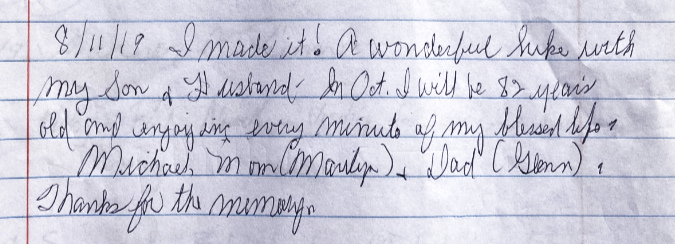 8/11/19 I made it! A wonderful hike with
my Son & Husband - In Oct. I will be 82 years
old and enjoying every minute of my blessed life.
Michael, Mom (Marilyn), Dad (Glenn).
Thanks for the memory.